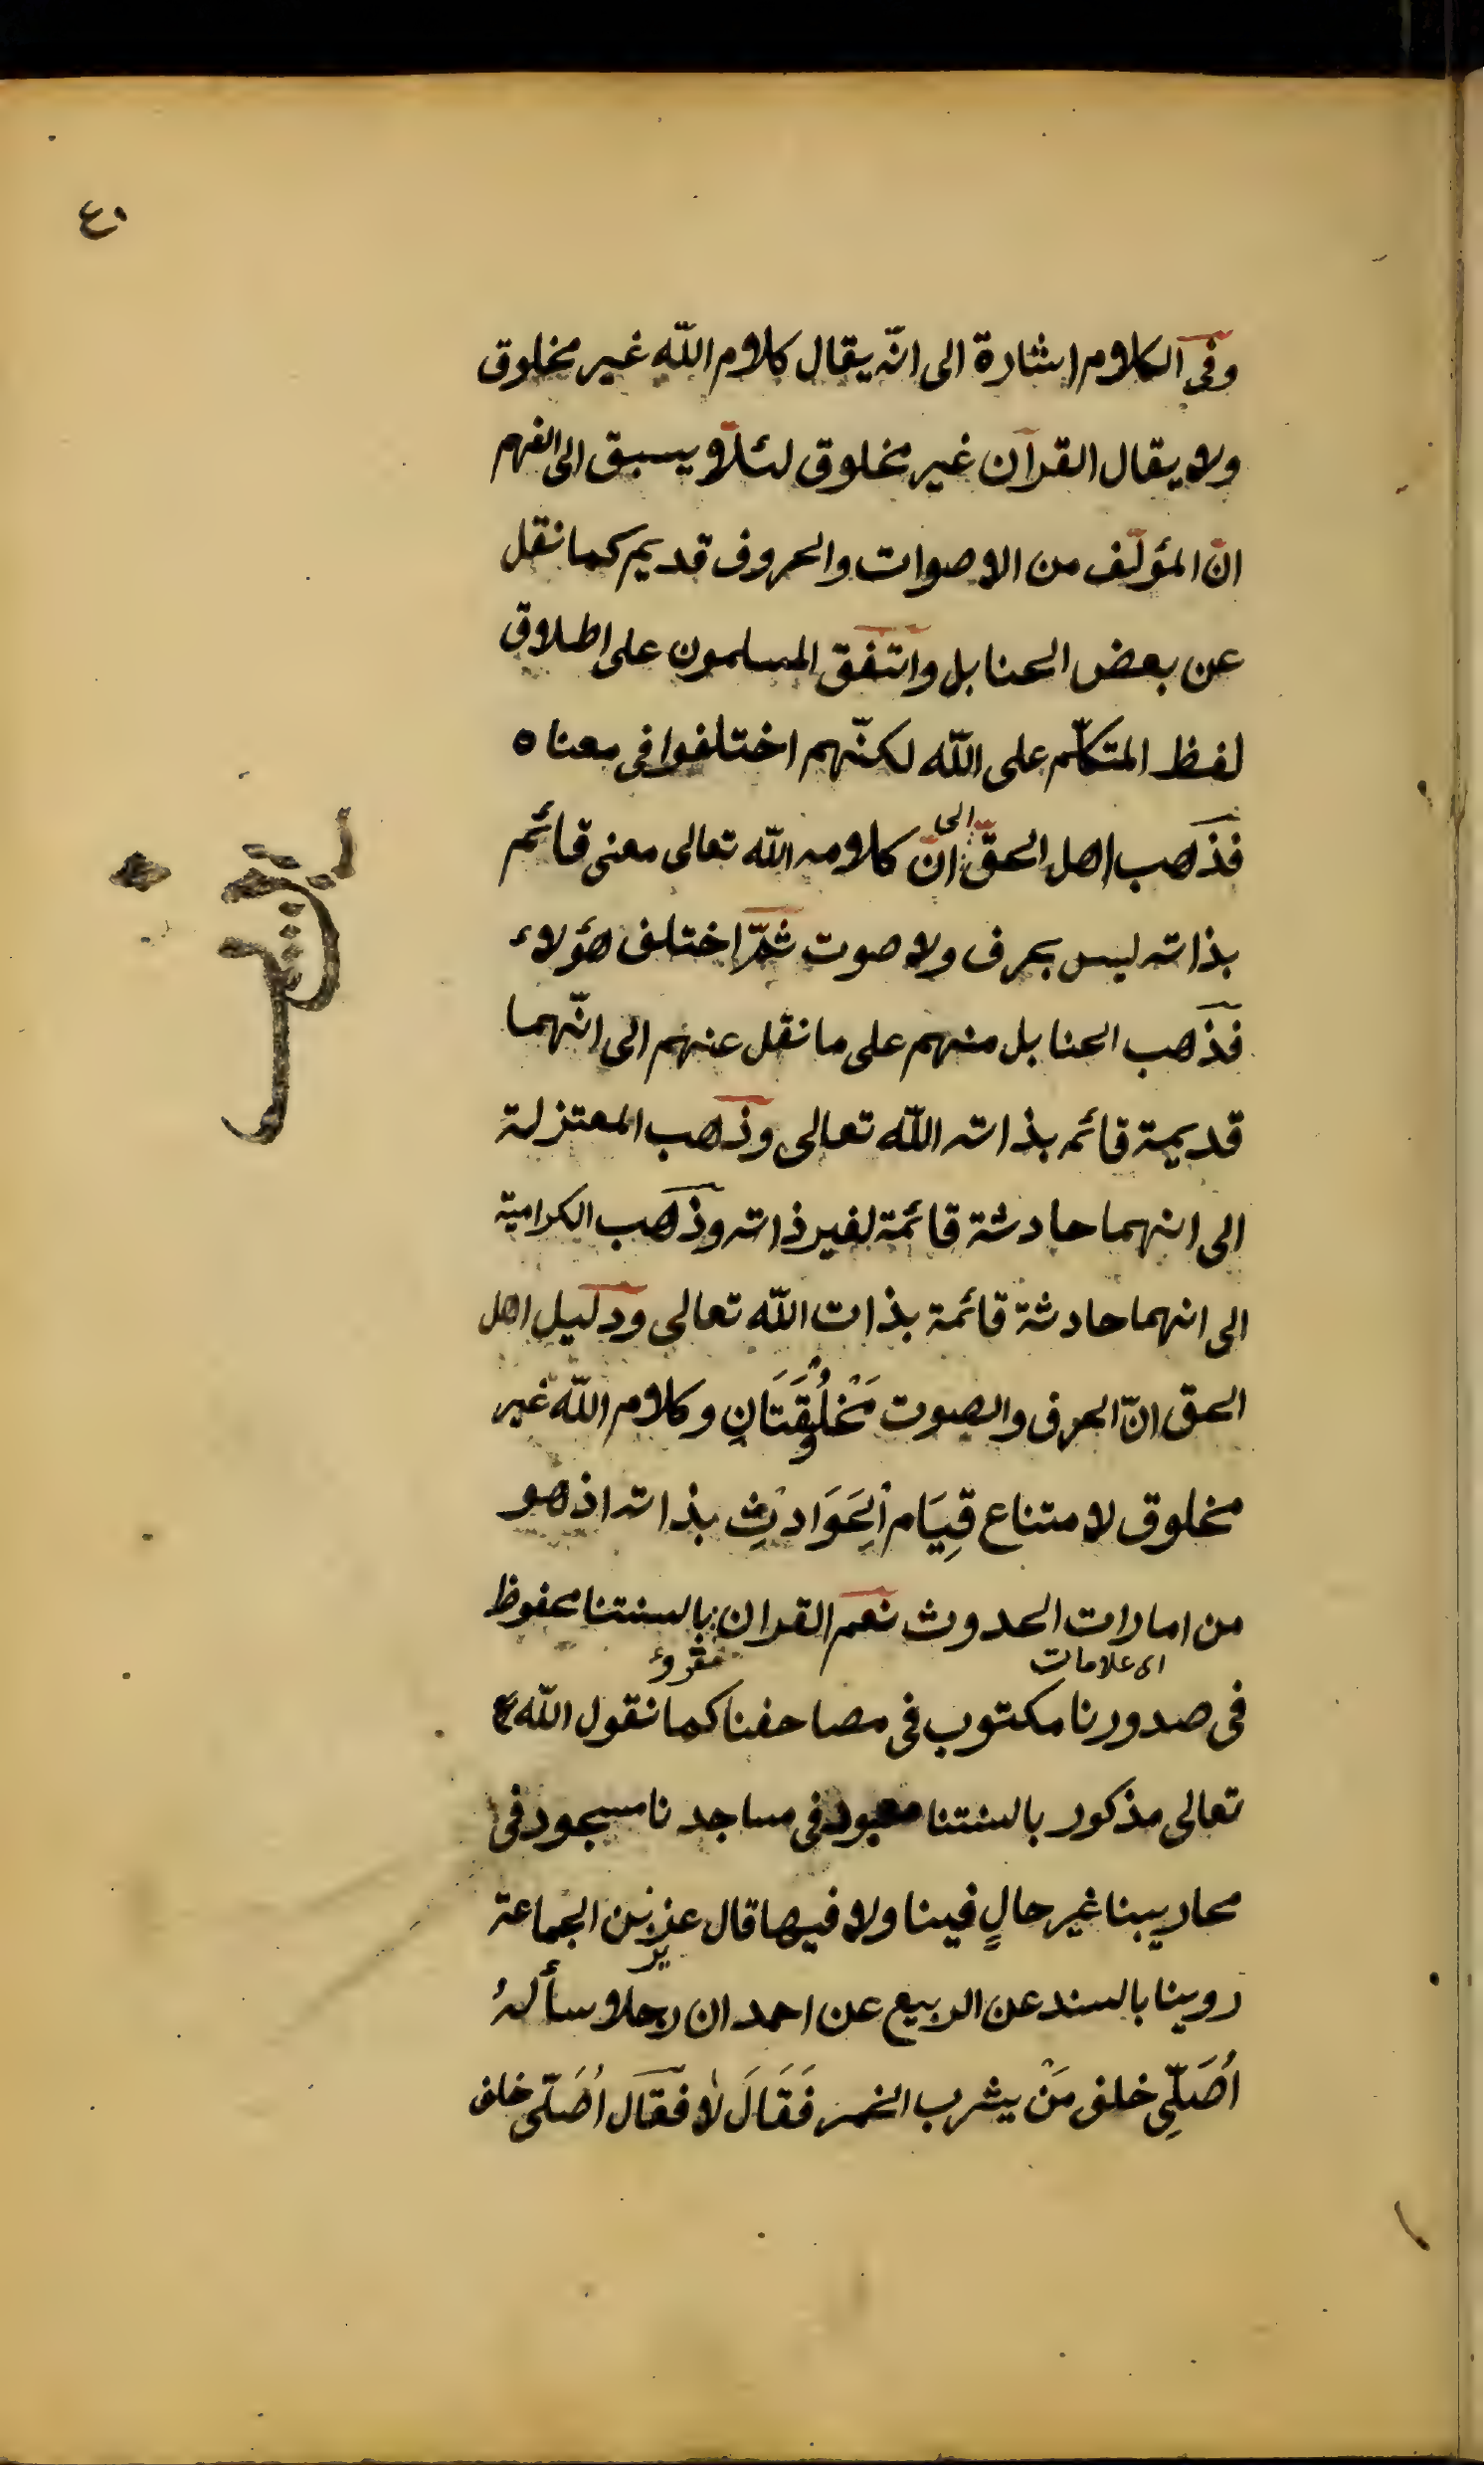 وفى الكلام اشارة الى انّه يقال كلام اللّه غير مخلوق
ولا يقال القرآن غير مخلوق لئلّا يسبق الى الفهم
انّ المؤلّف من الاصوات والحروف قديم كما نقل
عن بعض الحنابل واتّفق المسلمون على اطلاق
لفظ المتكلّم على اللّه لكنّهم اختلفوا فى معناه
فذهب اهل الحقّ الى انّ كلامه اللّه تعالى معنى قائم
بذاته ليس بحرف ولا صوت ثمّ اختلف هؤلاء
فذهب الحنابل منهم على ما نقل عنهم الى انّهما
قديمة قائمه بذاته اللّه تعالى وذهب المعتزلة
الى انهما حادثة قائمة لغير ذاته وذهب الكرامية
الى انهما حادثة قائمة بذات اللّه تعالى ودليل اهل
الحق انّ الحرف والصوت مَخْلُوقَتَانِ وكلام اللّه غير
مخلوق لامتناع قِيَام الحَوَادِثِ بذاته اذ هو
من امارات الحدوث نعم القران بالسنتنا محفوظ
اى علامات
مقروء
فى صدورنا مكتوب فى مصاحفنا كما نقول اللّه
تعالى مذكور بالسنتنا معبود فى مساجدنا مسجود فى
محاريبنا غير حالٍ فينا ولا فيها قال عز بن الجماعة
روينا بالسند عن الربيع عن احمد ان رجلا سألهُ
اُصَلِّى خلف مَنْ يشرب الخمر فَقَالَ لَا فقال اُصَلّى خلف